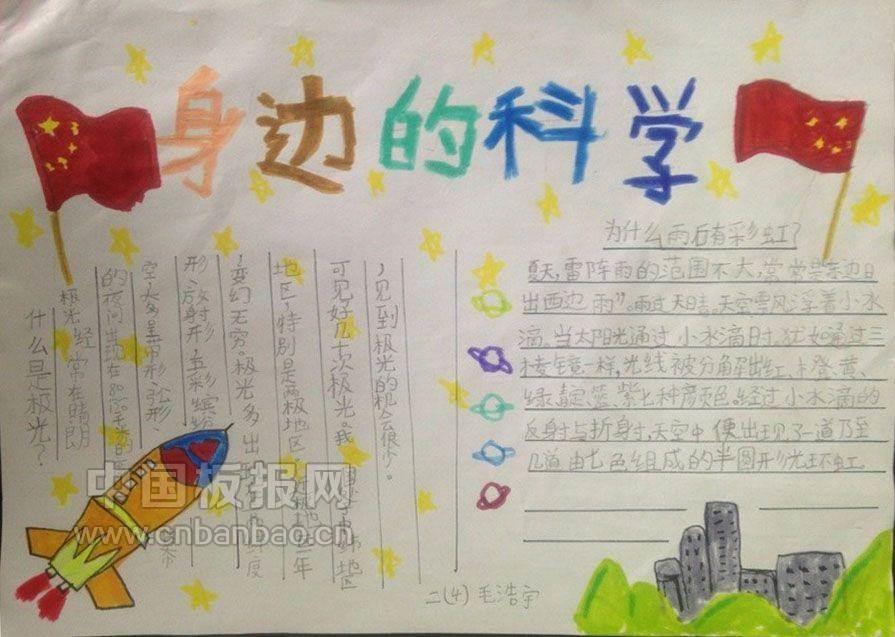 身边的科学
什么是极光？
极光经常在晴朗
的夜间出现在
空,大多呈带形、弧形、
形、放射形,五彩缤
,变幻无穷。极光多出 度
地区,特别是两极地区 一年
可见好几十次极光。我 纬地区
,见到极光的机会很少。
为什么雨后有彩虹？
夏天,雷阵雨的范围不大,常常是东边日
出西边雨”。雨过天晴,天空 浮着小水
滴。当太阳光通过小水滴时,犹如通过三
棱镜一样,光线被分解出红、橙、黄、
绿、靛、蓝、紫七种颜色,经过小水滴的
反射与折射,天空中便出现了一道乃至
几道由七色组成的半圆形光环虹
二(4) 毛浩宇
中国板报网
www.cnbanbao.cn